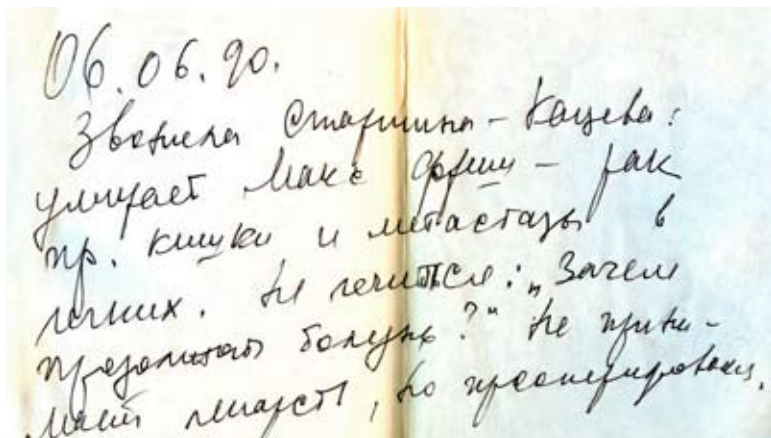 06.06.90.
Звонила старшина - Кацева:
умирает Макс Фриш - рак
пр. кишки и метастазы в
легких. Не лечится: „Зачем
продолжать болезнь?" Не прини-
мает лекарств, но прооперировался.